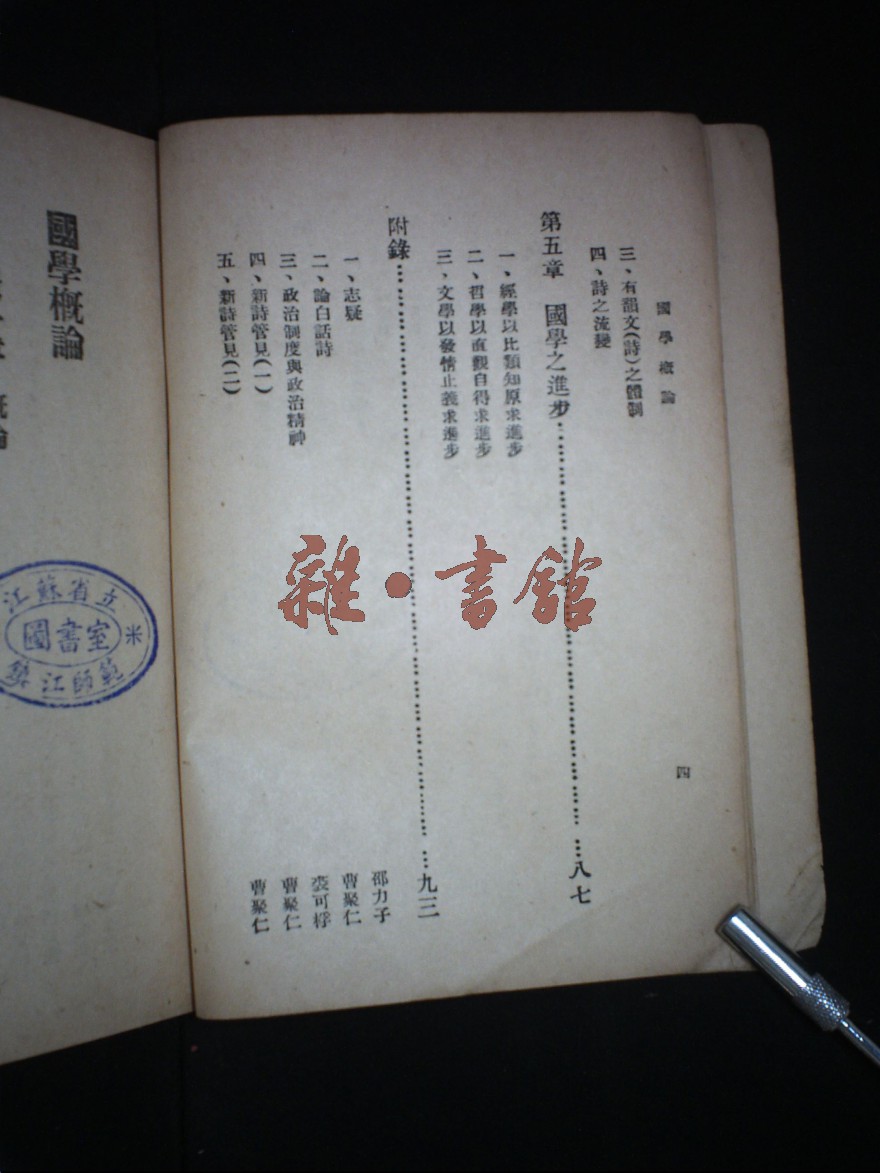 國學概論
三、有韻文(詩)之體制
四、詩之流變
第五章 國學之進步……八七
一、經學以比類知原求進步
二、哲學以直觀自得求進步
三、文學以發情止義求進步
附錄……九三
一、志疑 邵力子
二、論白話詩 曹聚仁
三、政治制度與政治精神 裘可桴
四、新詩管見(一) 曹聚仁
五、新詩管見(二) 曹聚仁
四
雜·書館
國學概論
江蘇省立
圖書室
鎮江師範